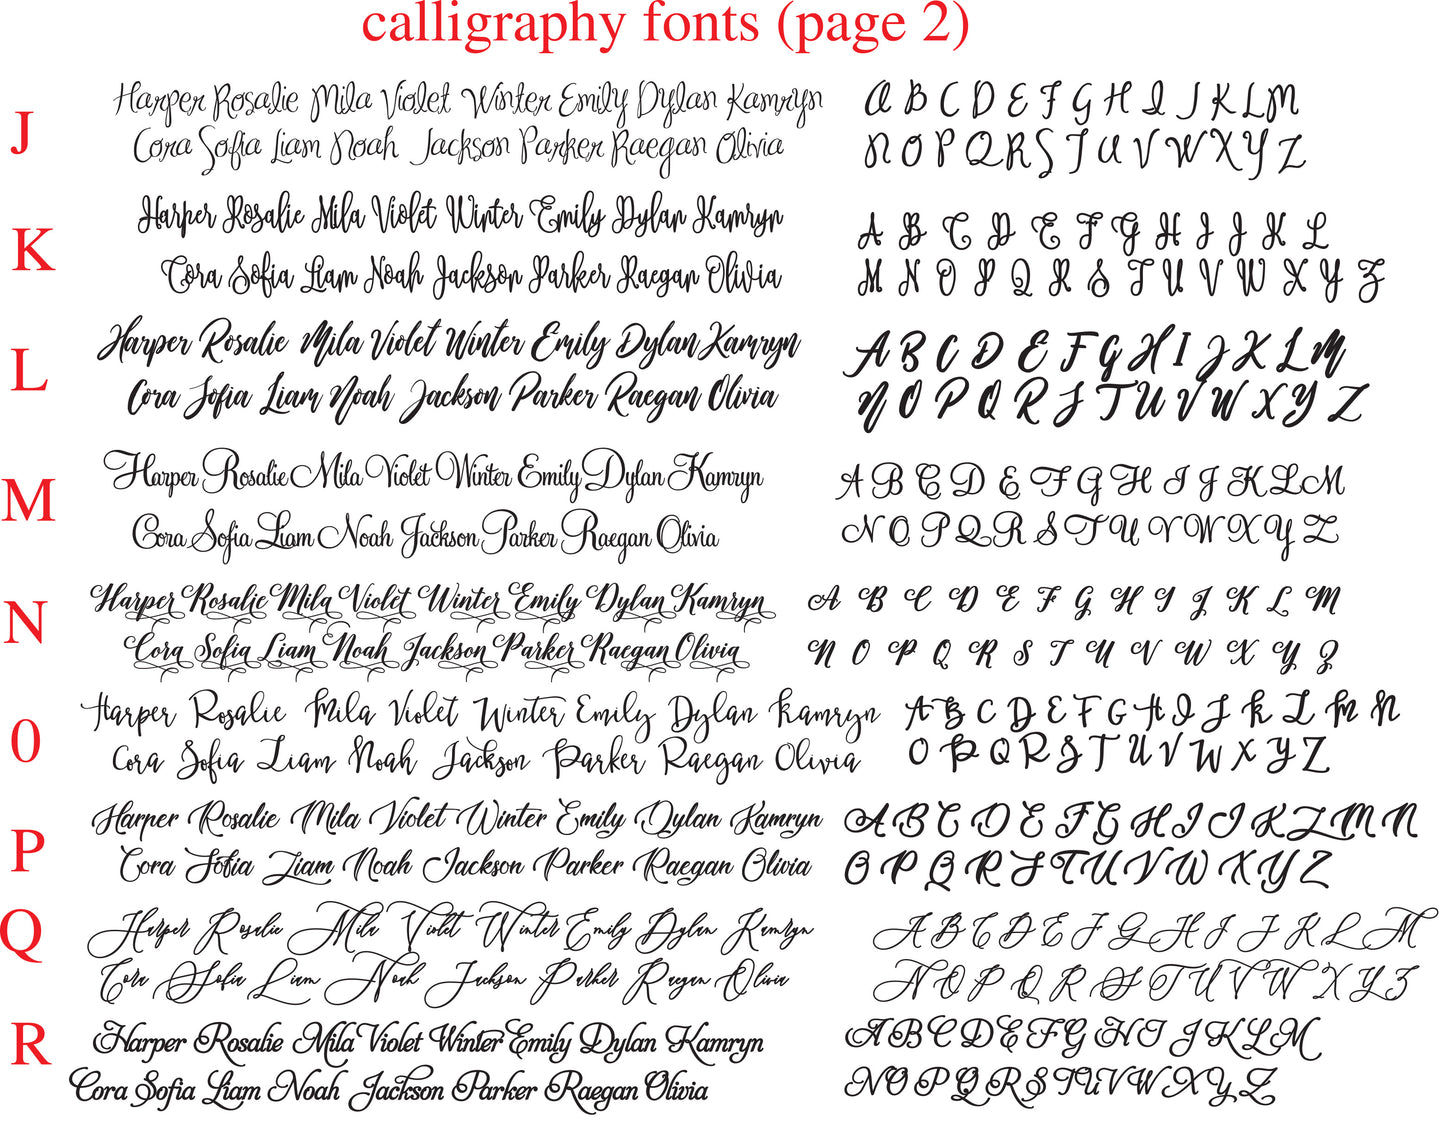 calligraphy fonts (page 2)
J
Harper Rosalie Mila Violet Winter Emily Dylan Kamryn
Cora Sofia Liam Noah Jackson Parker Raegan Olivia
A B C D E F G H I J K L M
N O P Q R S T U V W X Y Z
K
Harper Rosalie Mila Violet Winter Emily Dylan Kamryn
Cora Sofia Liam Noah Jackson Parker Raegan Olivia
A B C D E F G H I J K L
M N O P Q R S T U V W X Y Z
L
Harper Rosalie Mila Violet Winter Emily Dylan Kamryn
Cora Sofia Liam Noah Jackson Parker Raegan Olivia
A B C D E F G H I J K L M
N O P Q R S T U V W X Y Z
M
Harper Rosalie Mila Violet Winter Emily Dylan Kamryn
Cora Sofia Liam Noah Jackson Parker Raegan Olivia
A B C D E F G H I J K L M
N O P Q R S T U V W X Y Z
N
Harper Rosalie Mila Violet Winter Emily Dylan Kamryn
Cora Sofia Liam Noah Jackson Parker Raegan Olivia
A B C D E F G H I J K L M
N O P Q R S T U V W X Y Z
0
Harper Rosalie Mila Violet Winter Emily Dylan Kamryn
Cora Sofia Liam Noah Jackson Parker Raegan Olivia
A B C D E F G H I J K L M N
O P Q R S T U V W X Y Z
P
Harper Rosalie Mila Violet Winter Emily Dylan Kamryn
Cora Sofia Liam Noah Jackson Parker Raegan Olivia
A B C D E F G H I J K L M N
O P Q R S T U V W X Y Z
Q
Harper Rosalie Mila Violet Winter Emily Dylan Kamryn
Cora Sofia Liam Noah Jackson Parker Raegan Olivia
A B C D E F G H I J K L M
N O P Q R S T U V W X Y Z
R
Harper Rosalie Mila Violet Winter Emily Dylan Kamryn
Cora Sofia Liam Noah Jackson Parker Raegan Olivia
A B C D E F G H I J K L M
N O P Q R S T U V W X Y Z